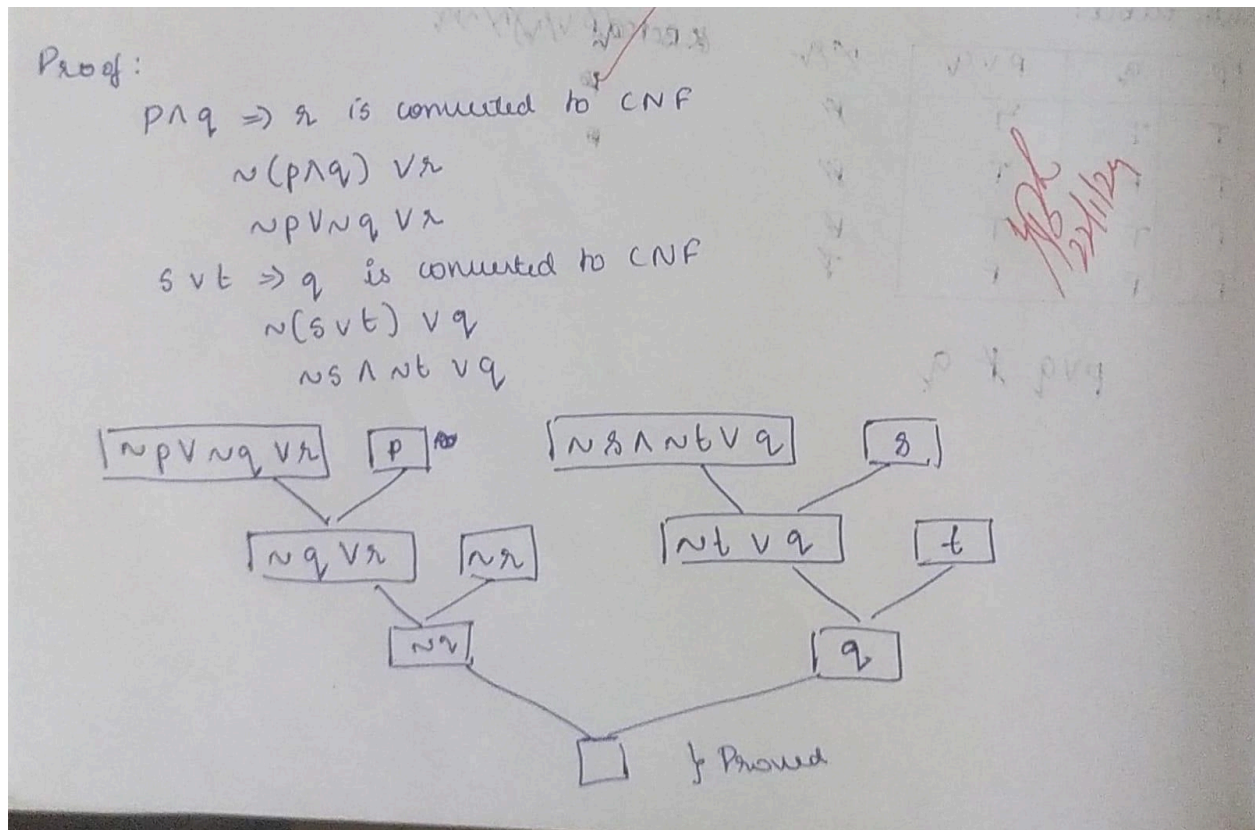 Proof :
p∧q => r is converted to CNF
~(p∧q) ∨r
~p∨~q ∨r
s∨t => q is converted to CNF
~(s∨t) ∨q
~s ∧ ~t ∨q
~p∨~q ∨r p ~s∧~t∨q s
~q ∨r ~r ~t ∨q t
~q q
} Proved
22/1/24